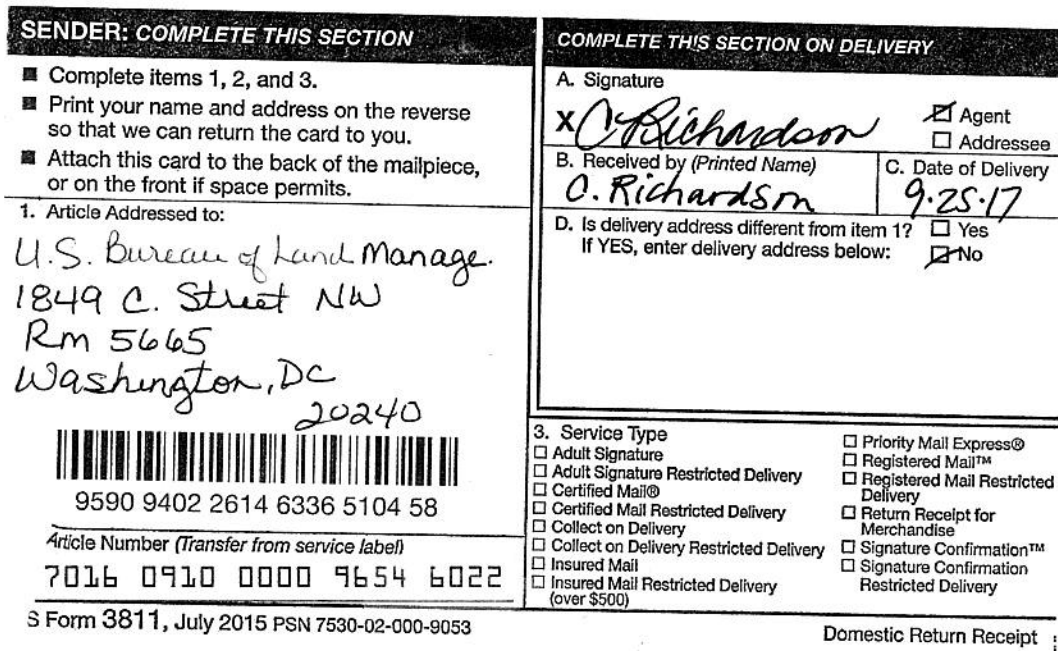 SENDER: COMPLETE THIS SECTION
■ Complete items 1, 2, and 3.
■ Print your name and address on the reverse
so that we can return the card to you.
■ Attach this card to the back of the mailpiece,
or on the front if space permits.
1. Article Addressed to:
U.S. Bureau of Land Manage.
1849 C. Street NW
Rm 5665
Washington, DC
20240
9590 9402 2614 6336 5104 58
Article Number (Transfer from service label)
7016 0910 0000 9654 6022
S Form 3811, July 2015 PSN 7530-02-000-9053
COMPLETE THIS SECTION ON DELIVERY
A. Signature
X C Richardson
☒ Agent
☐ Addressee
B. Received by (Printed Name)
C. Richardson
C. Date of Delivery
9.25.17
D. Is delivery address different from item 1? ☐ Yes
If YES, enter delivery address below: ☒ No
3. Service Type
☐ Adult Signature
☐ Adult Signature Restricted Delivery
☐ Certified Mail®
☐ Certified Mail Restricted Delivery
☐ Collect on Delivery
☐ Collect on Delivery Restricted Delivery
☐ Insured Mail
☐ Insured Mail Restricted Delivery
(over $500)
☐ Priority Mail Express®
☐ Registered Mail™
☐ Registered Mail Restricted
Delivery
☐ Return Receipt for
Merchandise
☐ Signature Confirmation™
☐ Signature Confirmation
Restricted Delivery
Domestic Return Receipt